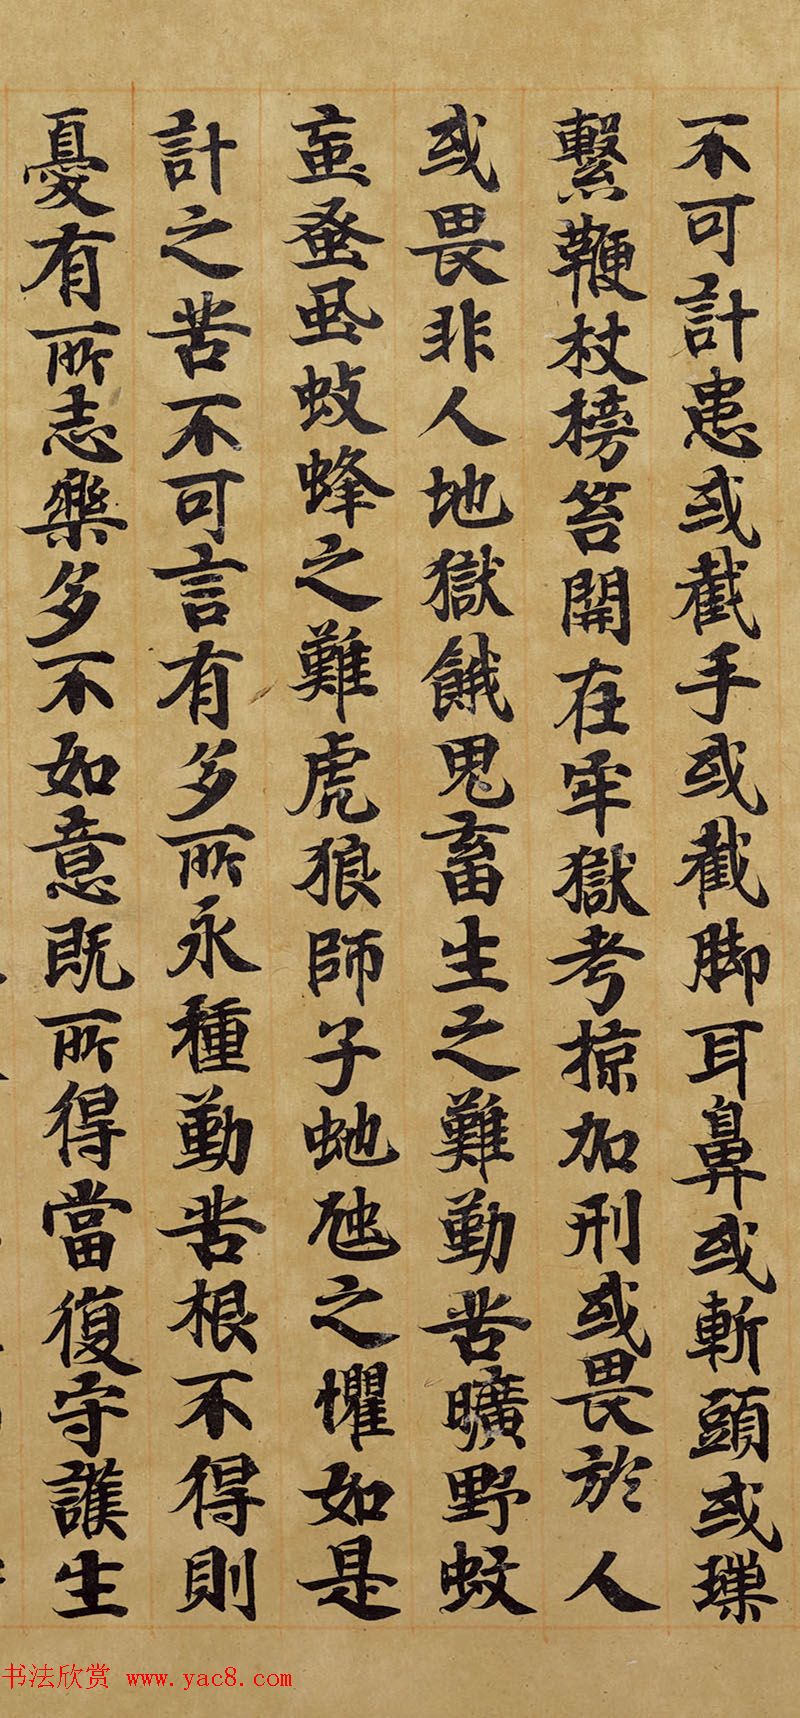 不可計患或截手或截脚耳鼻或斬頭或
繫鞭杖榜笞閞在牢獄考掠加刑或畏於人
或畏非人地獄餓鬼畜生之難勤苦曠野蚊
䖟蚤虱蚑蜂之難虎狼師子虵虺之懼如是
計之苦不可言有多所永種勤苦根不得則
憂有所志樂多不如意既所得當復守護生
书法欣赏 www.yac8.com